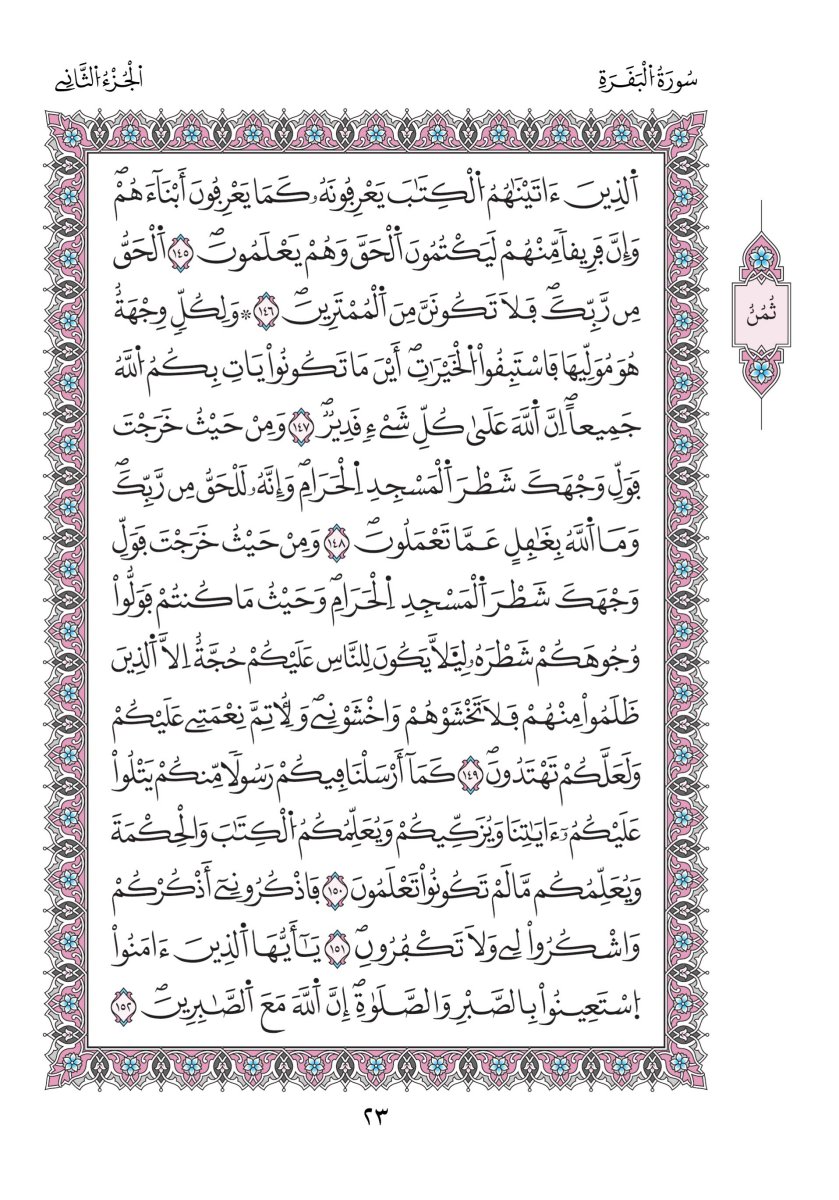 سُورَةُ اُ۬لْبَقَرَةِ
اُ۬لْجُزْءُ اُ۬لثَّانِے
اَ۬لذِينَ ءَاتَيْنَٰهُمُ اُ۬لْكِتَٰبَ يَعْرِفُونَهُۥ كَمَا يَعْرِفُونَ أَبْنَآءَهُمْۖ
وَإِنَّ فَرِيقاٗ مِّنْهُمْ لَيَكْتُمُونَ اَ۬لْحَقَّ وَهُمْ يَعْلَمُونَۖ ١٤٥ اَ۬لْحَقُّ
مِن رَّبِّكَۖ فَلَا تَكُونَنَّ مِنَ اَ۬لْمُمْتَرِينَۖ ١٤٦ ۞ وَلِكُلّٖ وِجْهَةٌ
هُوَ مُوَلِّيهَا فَاسْتَبِقُواْ اُ۬لْخَيْرَٰتِۖ أَيْنَ مَا تَكُونُواْ يَاتِ بِكُمُ اُ۬للَّهُ
جَمِيعاًۖ اِنَّ اَ۬للَّهَ عَلَىٰ كُلِّ شَےْءٖ قَدِيرٞۖ ١٤٧ وَمِنْ حَيْثُ خَرَجْتَ
فَوَلِّ وَجْهَكَ شَطْرَ اَ۬لْمَسْجِدِ اِ۬لْحَرَامِۖ وَإِنَّهُۥ لَلْحَقُّ مِن رَّبِّكَۖ
وَمَا اَ۬للَّهُ بِغَٰفِلٍ عَمَّا تَعْمَلُونَۖ ١٤٨ وَمِنْ حَيْثُ خَرَجْتَ فَوَلِّ
وَجْهَكَ شَطْرَ اَ۬لْمَسْجِدِ اِ۬لْحَرَامِۖ وَحَيْثُ مَا كُنتُمْ فَوَلُّواْ
وُجُوهَكُمْ شَطْرَهُۥ لِيَلَّا يَكُونَ لِلنَّاسِ عَلَيْكُمْ حُجَّةٌ اِلَّا اَ۬لذِينَ
ظَلَمُواْ مِنْهُمْ فَلَا تَخْشَوْهُمْ وَاخْشَوْنِےۖ وَلِأُتِمَّ نِعْمَتِے عَلَيْكُمْ
وَلَعَلَّكُمْ تَهْتَدُونَۖ ١٤٩ كَمَآ أَرْسَلْنَا فِيكُمْ رَسُولاٗ مِّنكُمْ يَتْلُواْ
عَلَيْكُمُۥٓ ءَايَٰتِنَا وَيُزَكِّيكُمْ وَيُعَلِّمُكُمُ اُ۬لْكِتَٰبَ وَالْحِكْمَةَ
وَيُعَلِّمُكُم مَّا لَمْ تَكُونُواْ تَعْلَمُونَ ١٥٠ فَاذْكُرُونِےٓ أَذْكُرْكُمْ
وَاشْكُرُواْ لِے وَلَا تَكْفُرُونِۖ ١٥١ يَٰٓأَيُّهَا اَ۬لذِينَ ءَامَنُواْ
اُ۪سْتَعِينُواْ بِالصَّبْرِ وَالصَّلَوٰةِۖ إِنَّ اَ۬للَّهَ مَعَ اَ۬لصَّٰبِرِينَۖ ١٥٢
ثُمُنُ
٢٣